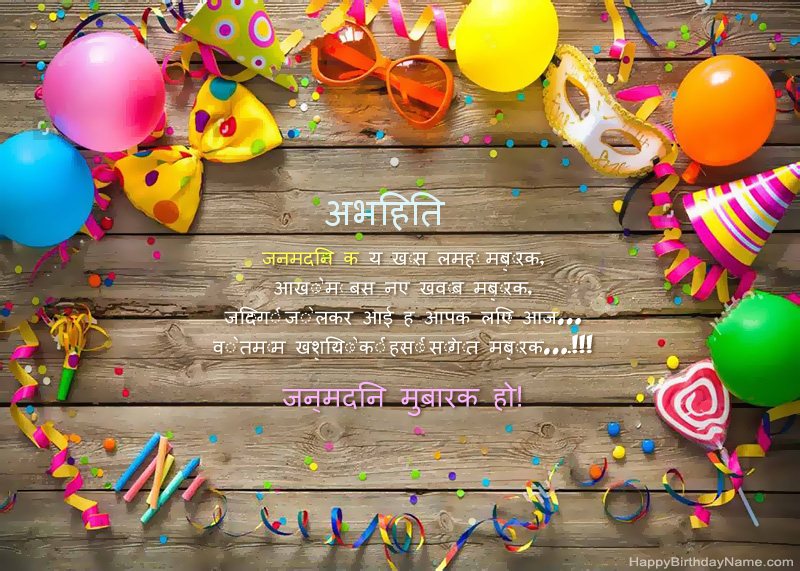 अभहिति
जनमदनि क य खास लमहा मबारक,
आखों में बस नए खवाब मबारक,
जदिगी जो लेकर आई ह आपक लएि आज...
वो तमाम खशयिों की हसीं सौगात मबारक...!!!
जन्मदनि मुबारक हो!
HappyBirthdayName.com